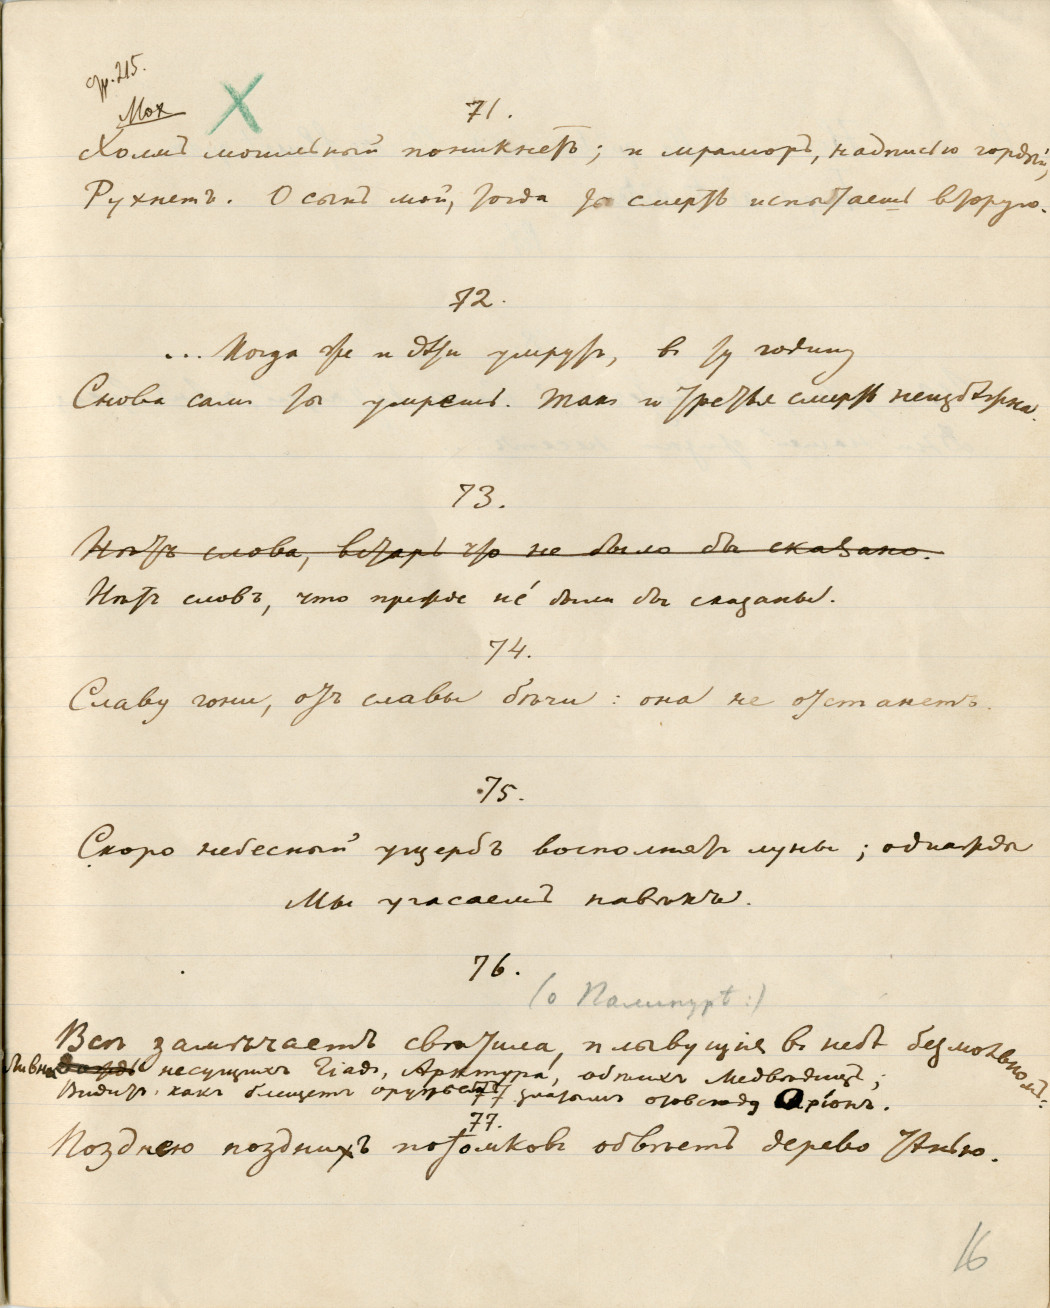 215.
Мох
71.
Холмъ могильный поникнетъ; и мраморъ, надписью гордый,
Рухнетъ. О сынъ мой, тогда ты смерть испытаешь вторую.
72.
... Когда же и эти умрутъ, въ ту годину
Снова самъ ты умрешь. Такъ и третья смерть неизбѣжна.
73.
Нѣтъ слова, встарь что не было бы сказано.
Нѣтъ словъ, что прежде не́ были бы сказаны.
74.
Славу гони, отъ славы бѣги: она не отстанетъ.
75.
Скоро небесный ущербъ восполнятъ луны; однажды
Мы угасаемъ навѣкъ.
76.
(о Палинурѣ:)
Всѣ замѣчаетъ свѣтила, плывущія въ небѣ безмолвномъ:
Ливни несущихъ Гіадъ, Арктура, обѣихъ Медвѣдицъ;
Видитъ, какъ блещетъ оружьемъ златымъ отовсюду Оріонъ.
77.
Позднею позднихъ потомковъ обвѣетъ дерево тѣнью.
16